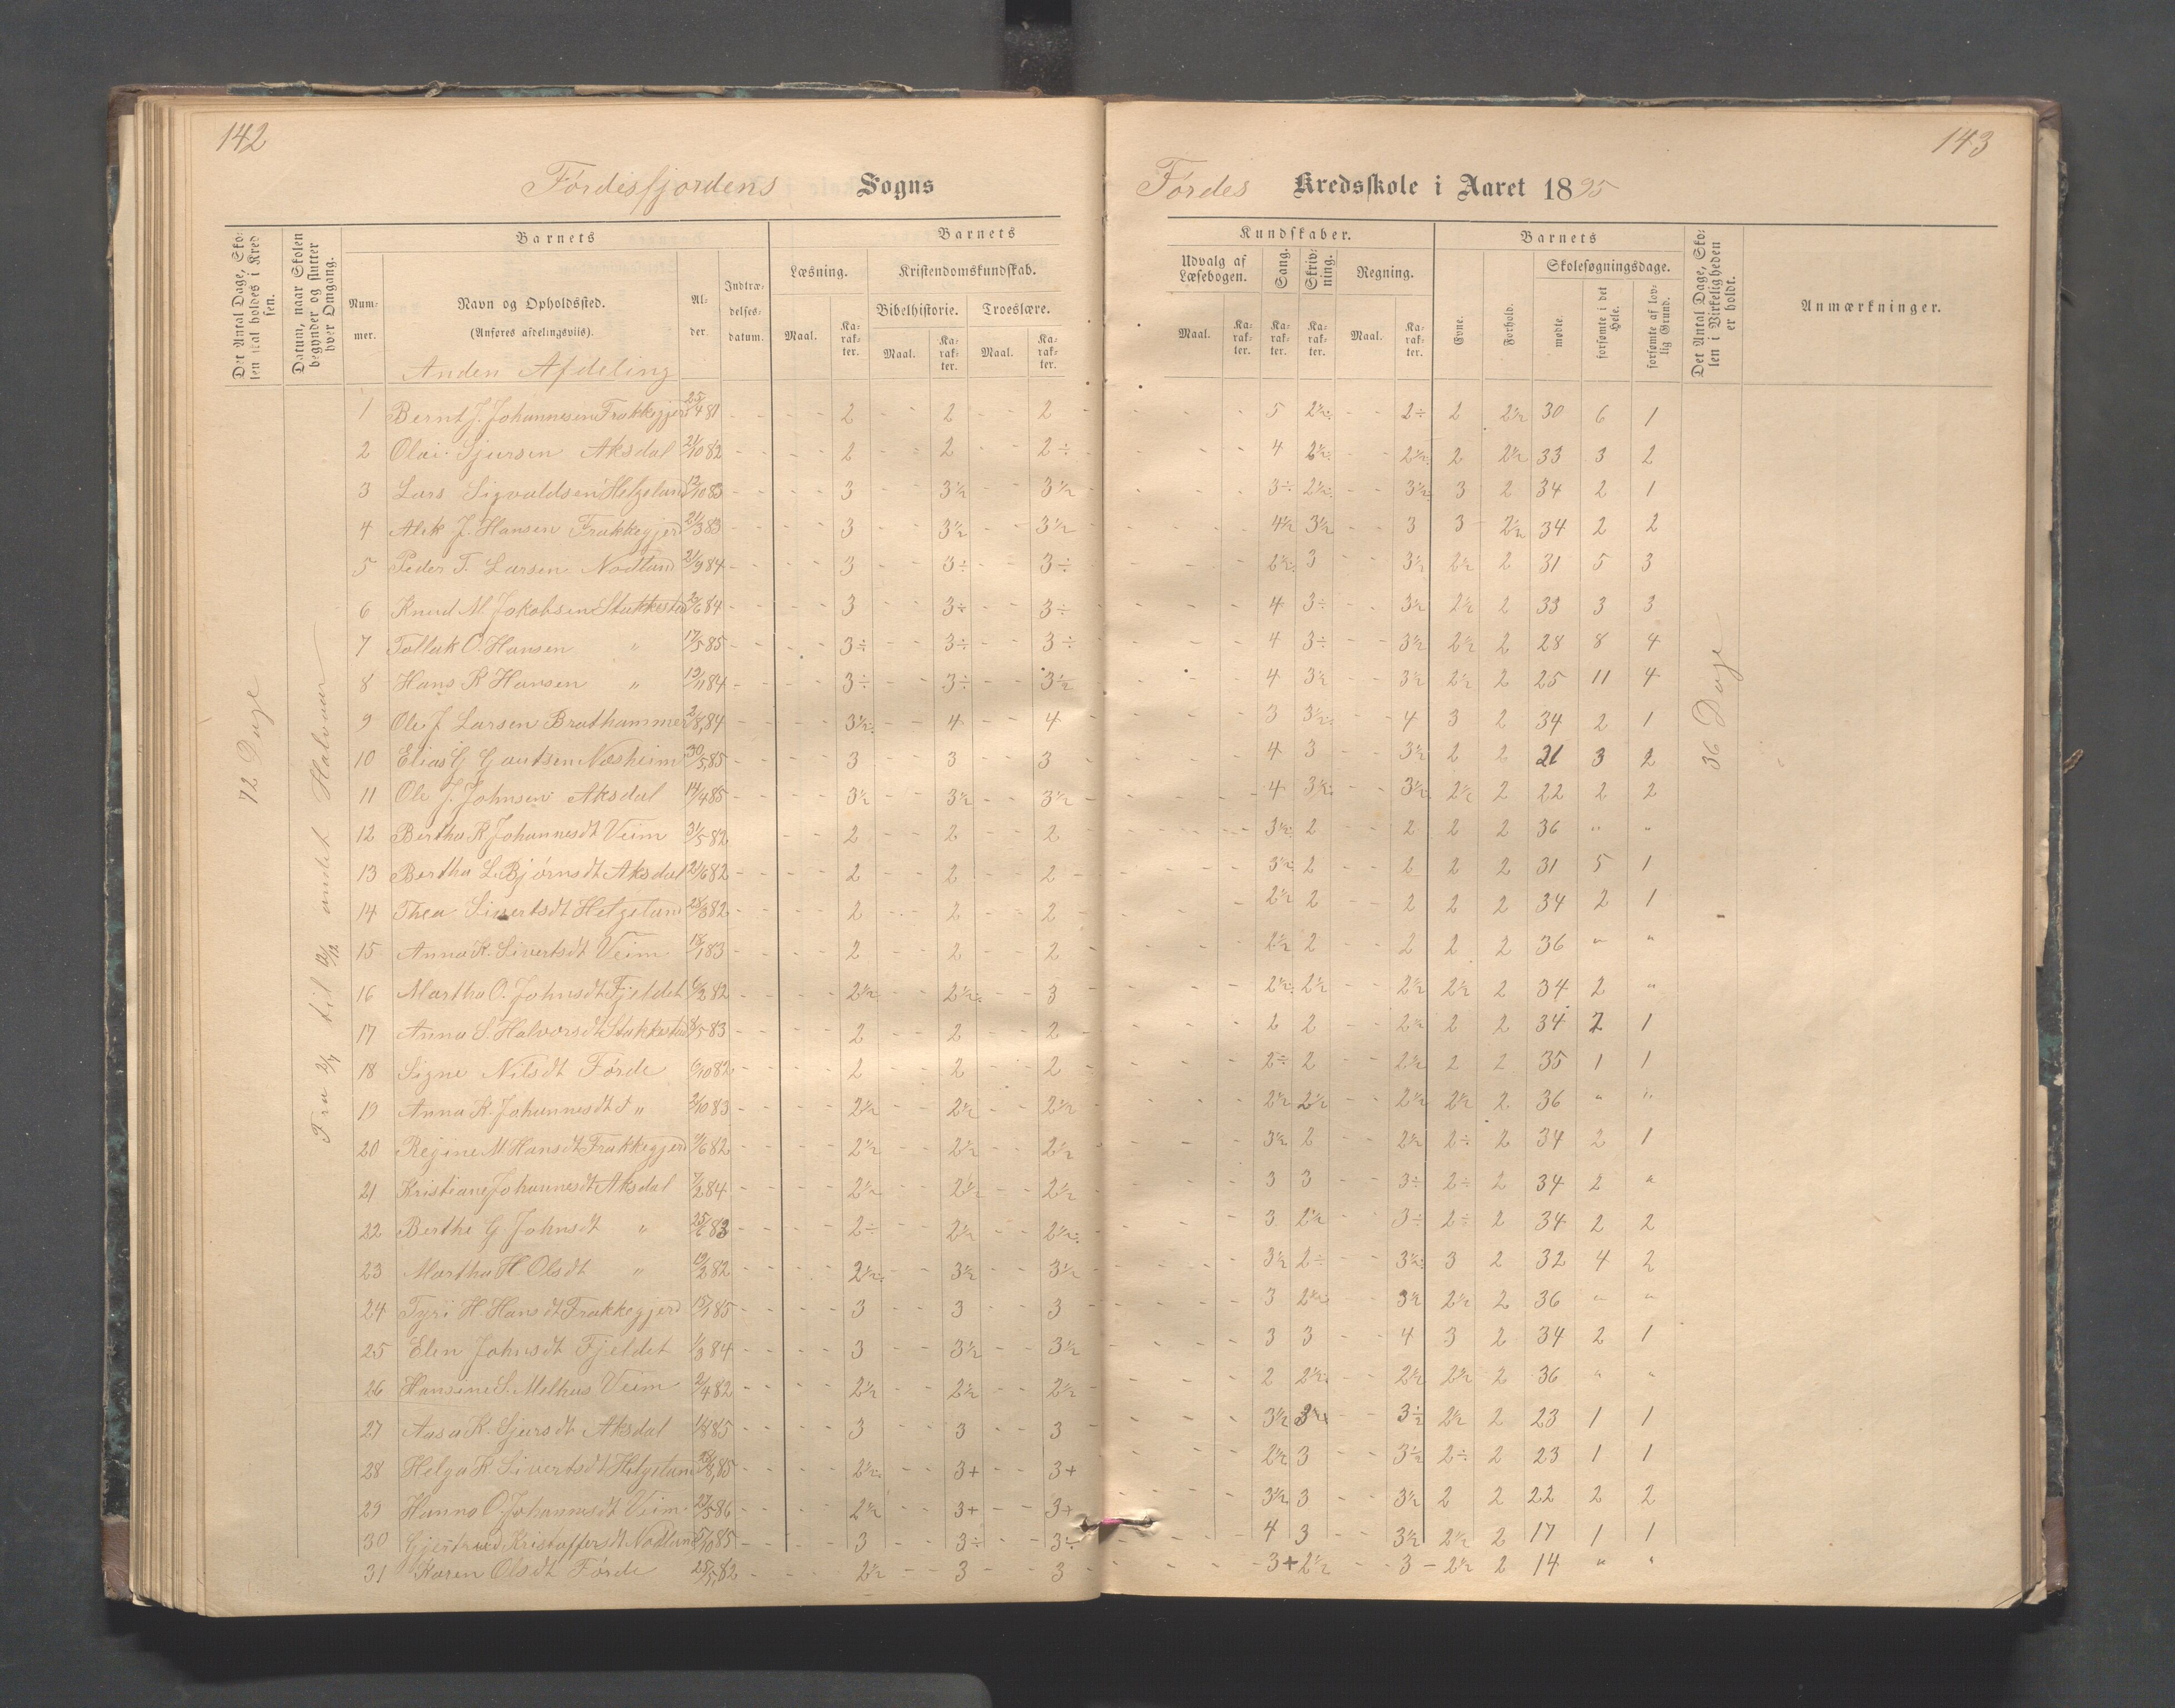 142
143
Fördesfjordens Sogns
Fördes Kredsskole i Aaret 1895
Det Antal Dage, Skolen skal holdes i Kredsen.
Datum, naar Skolen begynder og slutter hver Omgang.
Barnets
Barnets
Kundskaber.
Barnets
Det Antal Dage, Skolen i Virkeligheden er holdt.
Anmærkninger.
Nummer.
Navn og Opholdssted.
(Anføres afdelingsviis).
Alder.
Indtrædelsesdatum.
Læsning.
Kristendomskundskab.
Bibelhistorie.
Troeslære.
Udvalg af Læsebogen.
Sang.
Skrivning.
Regning.
Evne.
Forhold.
Skolesøgningsdage.
mødte.
forsømte i det Hele.
forsømte af lovlig Grund.
Maal. Karakter. Maal. Karakter. Maal. Karakter.
Maal. Karakter. Karakter. Karakter. Maal. Karakter.
Anden Afdeling
72 Dage
Fra 2/7 til 12/12 andet Halvaar
36 Dage
1 Bernt J. Johannesen Frakkegjerd 25/4 81 2 2 2 5 2½÷ 2÷ 2 2½ 30 6 1
2 Olai Sjursen Aksdal 21/10 82 2 2 2÷ 4 2½÷ 2½÷ 2 2½ 33 3 2
3 Lars Sigvaldsen Helgeland 12/10 83 3 3½ 3½ 3÷ 2½÷ 3½ 3 2 34 2 1
4 Alek J. Hansen Frakkegjerd 21/3 83 3 3½ 3½ 4½ 3½ 3 3 2½ 34 2 2
5 Peder T. Larsen Nodland 21/9 84 3 3÷ 3÷ 2½÷ 3 3½ 2½ 2 31 5 3
6 Knud M. Jakobsen Stakkestad 2/6 84 3 3÷ 3÷ 4 3÷ 3½ 2½ 2 33 3 3
7 Tollak O. Hansen " 17/5 85 3÷ 3÷ 3÷ 4 3÷ 3½ 2½ 2 28 8 4
8 Hans R Hansen " 19/11 84 3÷ 3÷ 3½ 4 3½ 3½ 2½ 2 25 11 4
9 Ole J Larsen Brathammer 2/8 84 3½÷ 4 4 3 3½÷ 4 3 2 34 2 1
10 Elias G Gautsen Næsheim 30/5 85 3 3 3 4 3 3½ 2 2 21 3 2
11 Ole J. Johnsen Aksdal 14/4 85 3½ 3½ 3½ 4 3½÷ 3½ 2½ 2 22 2 2
12 Bertha R. Johannesdt Veim 31/5 82 2 2 2 3½÷ 2 2 2 2 36 " "
13 Bertha L. Bjørnsdt Aksdal 21/6 82 2 2 2 3½÷ 2 2 2 2 31 5 1
14 Thea Sivertsdt Helgeland 28/3 82 2 2 2 2½ 2 2 2 2 34 2 1
15 Anna K. Sivertsdt Veim 18/1 83 2 2 2 2½ 2 2 2 2 36 " "
16 Martha O. Johnsdt Fjeldet 6/2 82 2½ 2½÷ 3 2½÷ 2½ 2½ 2½ 2 34 2 "
17 Anna S. Halvorsdt Stakkestad 8/5 83 2 2 2 2 2 2½ 2 2 34 2 1
18 Signe Nilsdt Førde 6/10 82 2 2 2 2÷ 2 2½ 2 2 35 1 1
19 Anna K. Johannesdt " 2/10 83 2½ 2½ 2½ 2½ 2½ 2½ 2½ 2 36 " "
20 Regine M Hansdt Frakkegjerd 9/6 82 2½ 2½ 2½ 3½ 2 2½ 2÷ 2 34 2 1
21 Kristiane Johannesdt Aksdal 7/2 84 2½ 2½ 2½ 3 3 3÷ 2÷ 2 34 2 "
22 Berthe G Johnsdt " 25/6 83 2÷ 2½ 2½÷ 3 2½ 3÷ 2÷ 2 34 2 2
23 Martha H Olsdt " 19/2 82 2½÷ 3½ 3½ 3½ 2÷ 3½÷ 3 2 32 4 2
24 Tyri H Hansdt Frakkegjerd 15/1 85 3 3 3 3 2½÷ 3½ 2½ 2 36 " "
25 Elen Johnsdt Fjeldet 1/3 84 3 3½ 3½ 3 3 4 3 2 34 2 1
26 Hansine S. Melhus Veim 2/4 82 2½ 2½ 2½ 2 2½÷ 2½ 2½ 2 36 " "
27 Aasa K. Sjursdt Aksdal 85 3 3 3 3½ 3½ 3½ 2½ 2 23 1 1
28 Helga K Sivertsdt Helgeland 8 85 2½÷ 3+ 3+ 2½ 3 3½ 2÷ 2 23 1 1
29 Hanna O Johannesdt Veim 27/5 86 2½ 3+ 3+ 3½ 3 3½ 2 2 22 2 2
30 Gjertrud Kristoffersdt Nodland 5/10 85 3 3÷ 3÷ 4 3 3½ 2½ 2 17 1 1
31 Karen Olsdt Førde 25/5 82 2½ 3 3 3+ 2½ 3 2½ 2 14 " "